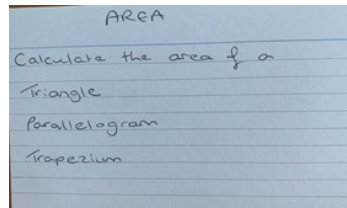 AREA
Calculate the area of a
Triangle
Parallelogram
Trapezium